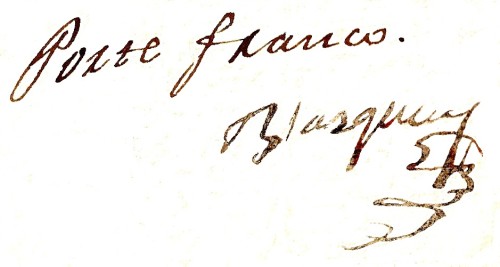 Porte franco.
Blazquez